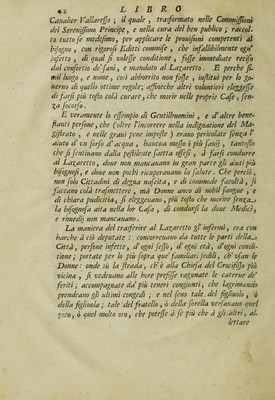 62 LIBRO
Caualier Vallaresso, il quale, trasformato nelle Commissioni
del Serenissimo Principe, e nella cura del ben publico; raccolto
tutto se medesimo, per applicare le prouisioni competenti al
bisogno, con rigorosi Editti commise, che infallibilmente ogn'
infetto, di qual si volesse conditione, fosse immediate reciso
dal consortio de' sani, e mandato al Lazaretto. E perche si-
mil luogo, e nome, così abborrito non fosse, instituì per lo go-
uerno di quello ottime regole; affinche altri volontieri eleggesse
di farsi più tosto colà curare, che morir nelle proprie Case, senza
soccorso.
E veramente lo essempio di Gentilhuomini, e d' altre bene-
stanti persone, che (oltre l'incorrere nella indignatione del Ma-
gistrato, e nelle graui pene imposte) erano pericolate senza l'
aiuto d'vn sorso d'acqua, haueua mosso i più saui; tantoche
che si sentiuano dalla pestilente saetta offesi, à farsi condurre
al Lazaretto, doue non mancauano in gran parte gli aiuti più
bisognosi, e doue non pochi ricuperauano la salute. Che perciò,
non solo Cittadini di degna nascita, e di commode facoltà, si
faceano colà trasmettere, mà Donne anco di nobil sangue, e
di chiara pudicitia, si eleggeuano, più tosto che morire senza
la bisogneuole aita nella lor Casa, di condursi là doue Medici,
e rimedij non mancauano.
La maniera del trasferire al Lazaretto gl'infermi, era con
barche à ciò deputate: concorreuano da tutte le parti della
Città, persone infette, d'ogni sesso, d'ogni età, d'ogni condi-
tione; portate per lo più sopra que' familiari sedili, ch'vsan le
Donne: onde tù la strada, ch'è alla Chiesa del Crocifisso più
vicina, si vedeuano alle hore prefisse ragunate le caterue de'
feriti; accompagnate da' più teneri congiunti, che lagrimando
prendeano gli ultimi congedi; e nel seno tale del figliuolo, ò
della figliuola; tale del fratello, ò della sorella versauano quel
poco, ò quel molto oro, che potesse à se più che à gli altri, al-
lettare